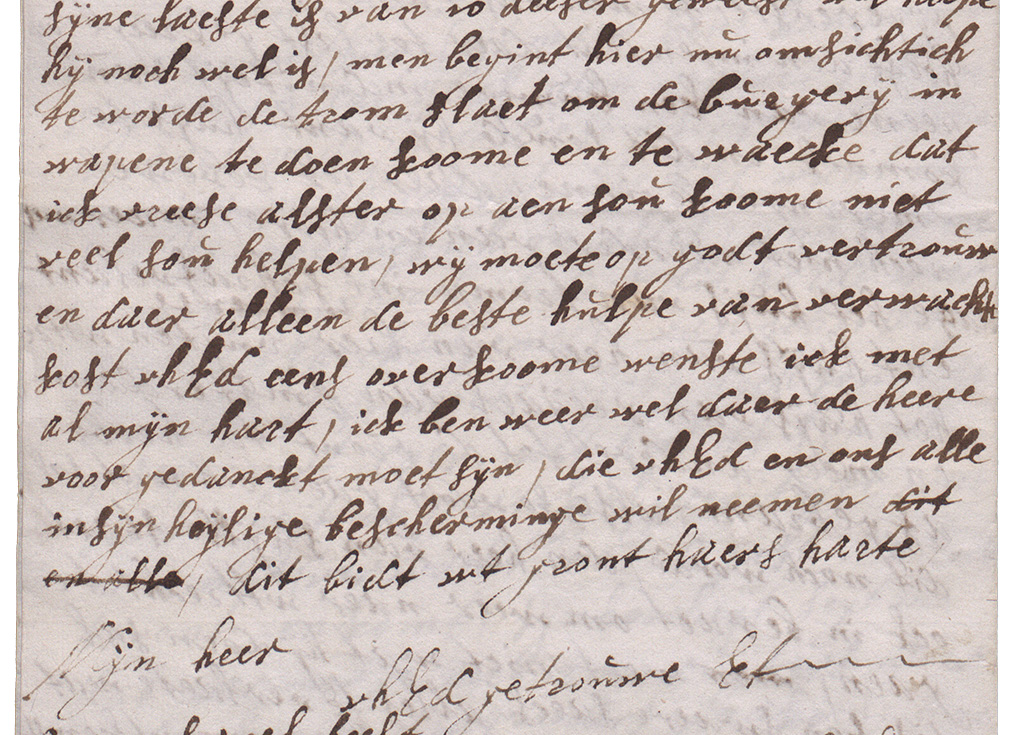 syne laeste is van 10 deeser geweest
hÿ noch wel is / men begint hier nu omsichtich
te worde de trom slaet om de burgerÿ in
wapene te doen koome en te waecke dat
ick vreese alster op aen sou koome niet
veel sou helpen / wÿ moete op godt vertrouw
en daer alleen de beste hulpe van verwachte
kost uhEd eens overkoome wenste ick met
al mÿn hart / ick ben weer wel daer de heere
voor gedanckt moet sÿn / die uhEd en ons alle
in sÿn heÿlige bescherminge wil neemen dit
en alle / dit bidt ut gront haers harte
Mÿn heer
uhEd getrouwe Et